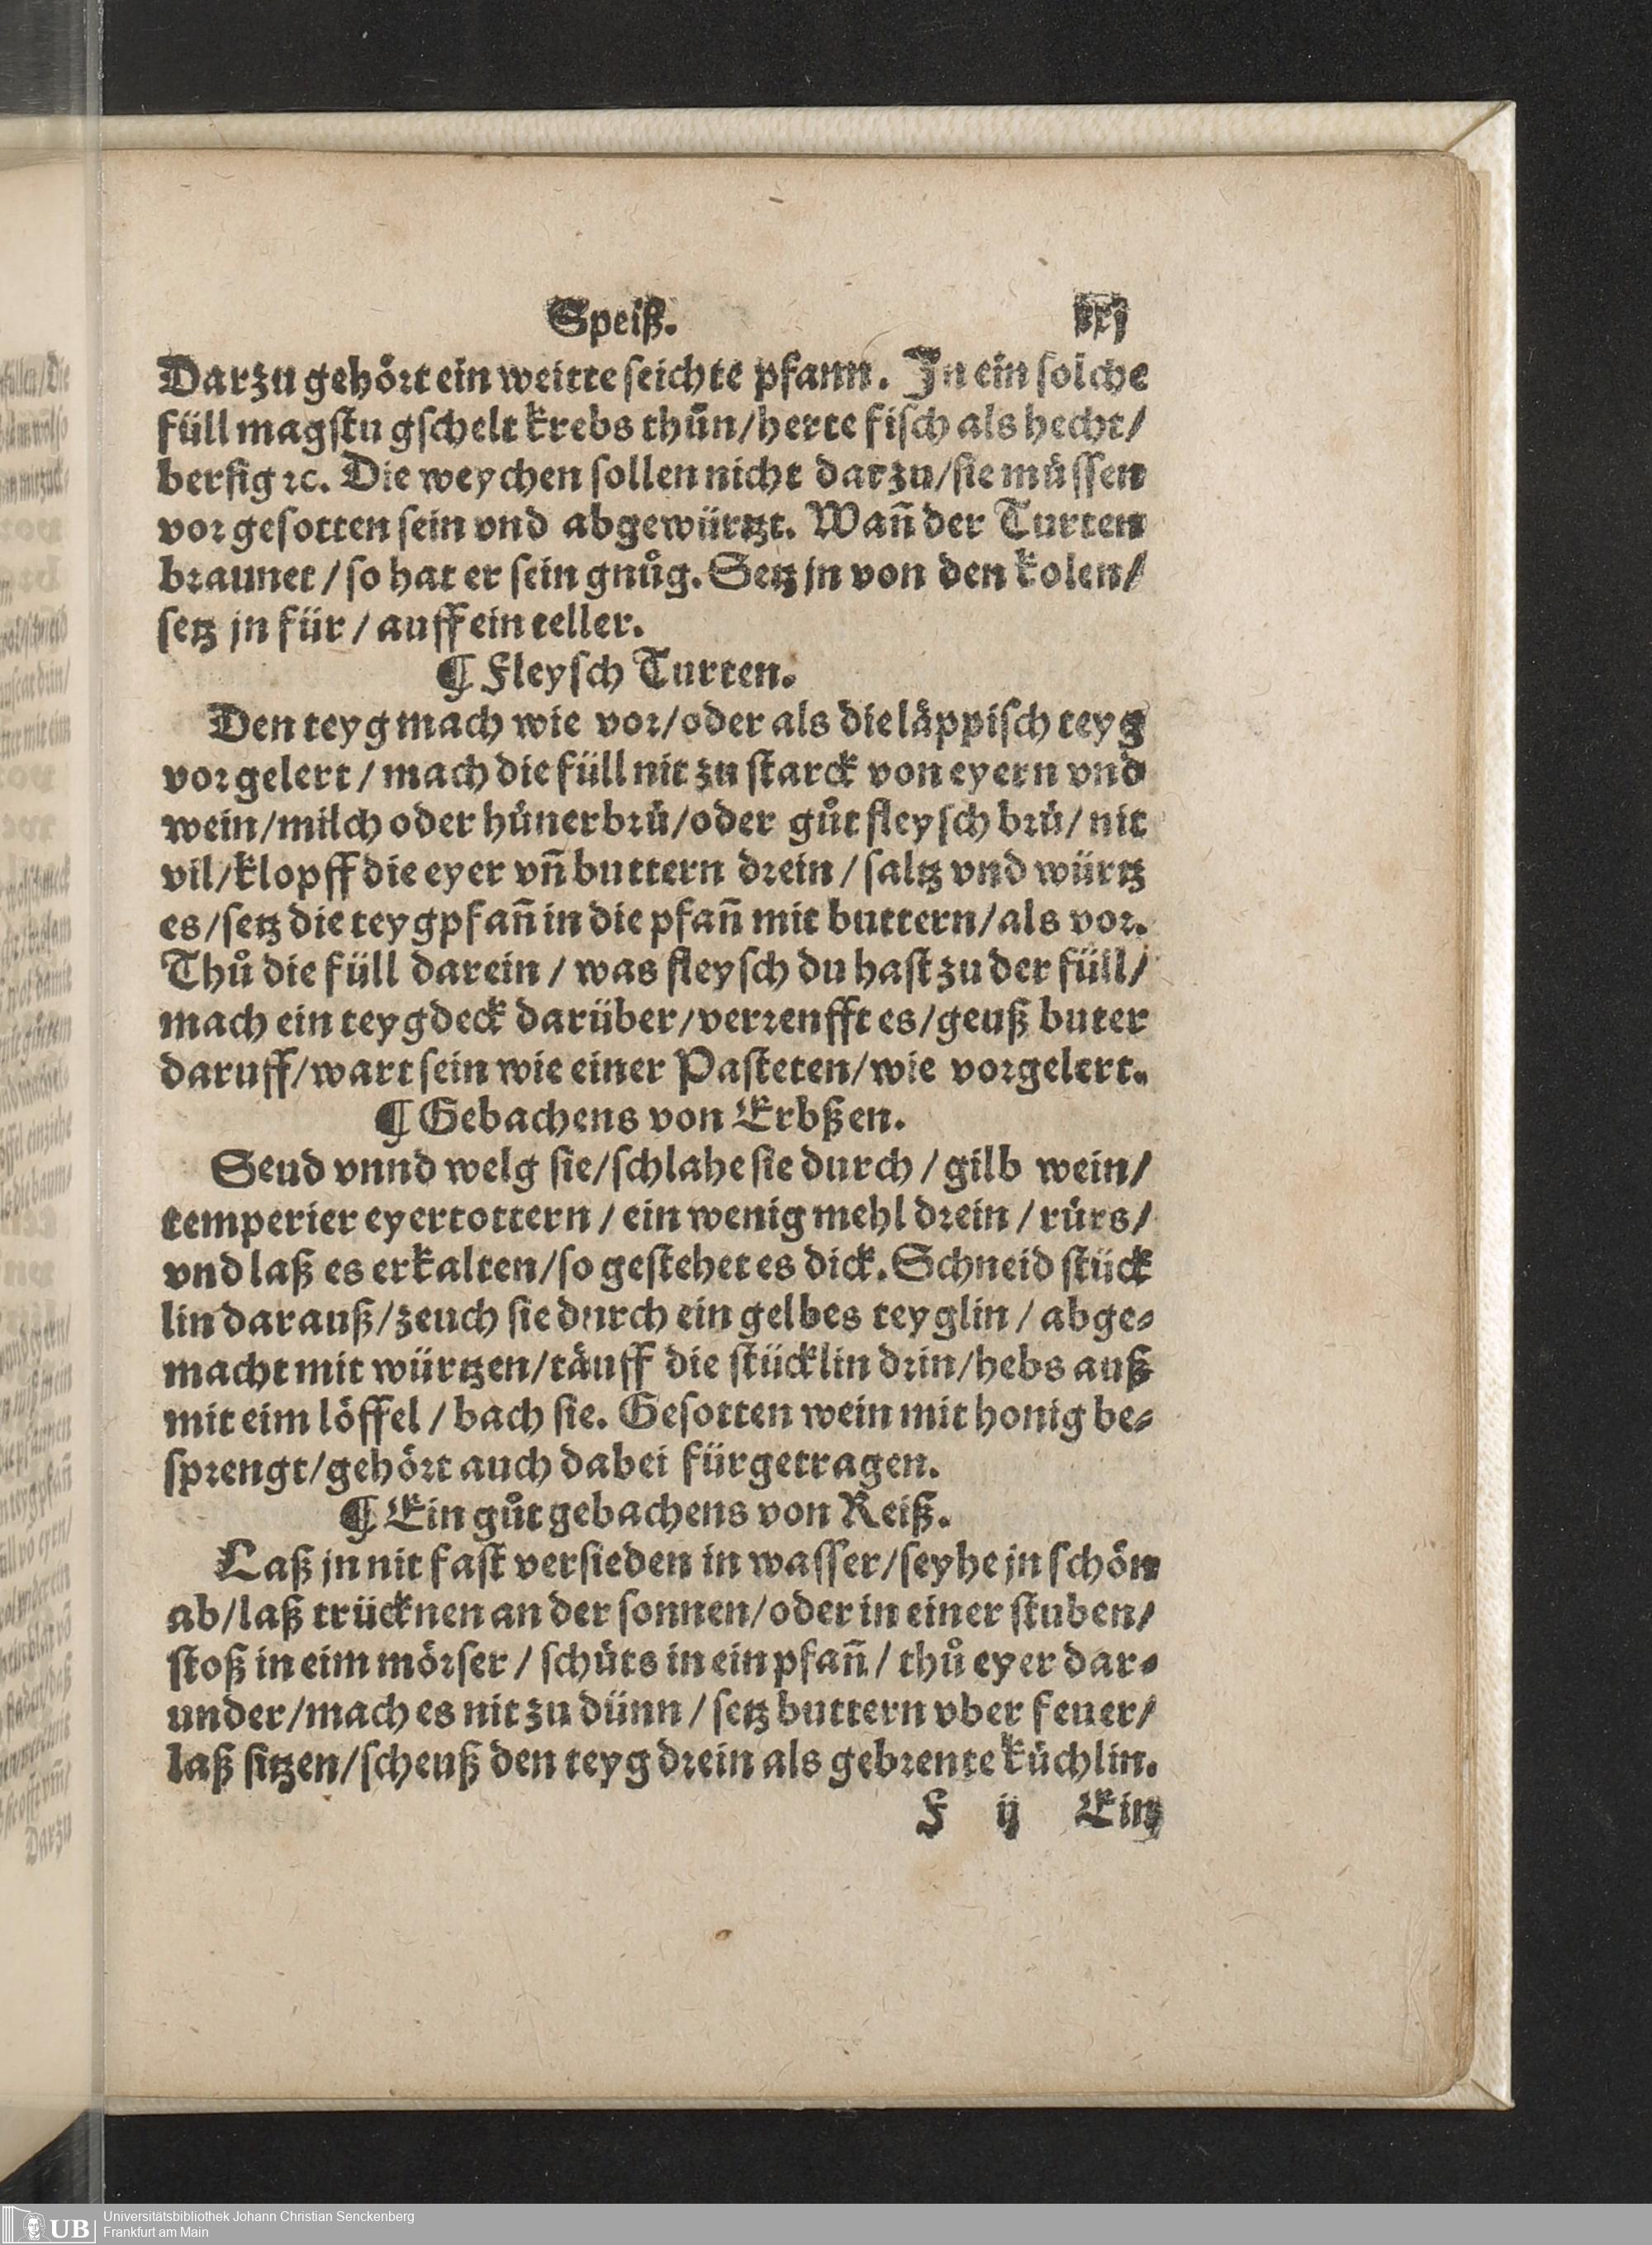 Speiß.
Darzu gehoͤrt ein weitte ſeichte pfann. In ein ſolche
füll magſtu gſchelt krebs thuͦn/herte fiſch als hecht/
berſig ꝛc. Die weychen ſollen nicht darzu/ſie muͤſſen
vor geſotten ſein vnd abgewürtzt. Wañ der Turten
braunet / ſo hat er ſein gnuͦg. Setz jn von den kolen/
ſetz jn für / auff ein teller.
¶ Fleyſch Turten.
Den teyg mach wie vor/oder als die laͤppiſch teyg
vorgelert / mach die füll nit zu ſtarck von eyern vnd
wein/milch oder huͤnerbruͤ/oder guͦt fleyſch bruͤ/ nit
vil/klopff die eyer vñ buttern drein / ſaltz vnd würtz
es/ſetz die teygpfañ in die pfañ mit buttern/als vor.
Thuͦ die füll darein / was fleyſch du haſt zu der füll/
mach ein teygdeck darüber/verrenfft es/geuß buter
daruff/wart ſein wie einer Paſteten/wie vorgelert.
¶ Gebachens von Erbßen.
Seud vnnd welg ſie/ſchlahe ſie durch / gilb wein/
temperier eyertottern / ein wenig mehl drein / ruͤrs/
vnd laß es erkalten/ſo geſtehet es dick. Schneid ſtück
lin darauß/zeuch ſie durch ein gelbes teyglin / abge⸗
macht mit würtzen/taͤuff die ſtücklin drin/hebs auß
mit eim loͤffel / bach ſie. Geſotten wein mit honig be⸗
ſprengt/gehoͤrt auch dabei fürgetragen.
¶ Ein guͦt gebachens von Reiß.
Laß jn nit faſt verſieden in waſſer/ſeyhe jn ſchoͤn
ab/laß trücknen an der ſonnen/oder in einer ſtuben/
ſtoß in eim moͤrſer / ſchuͤts in ein pfañ / thuͦ eyer dar⸗
under/mach es nit zu dünn / ſetz buttern vber feuer/
laß ſitzen/ſcheuß den teyg drein als gebrente kuͤchlin.
F ij Ein
UB
Universitätsbibliothek Johann Christian Senckenberg
Frankfurt am Main